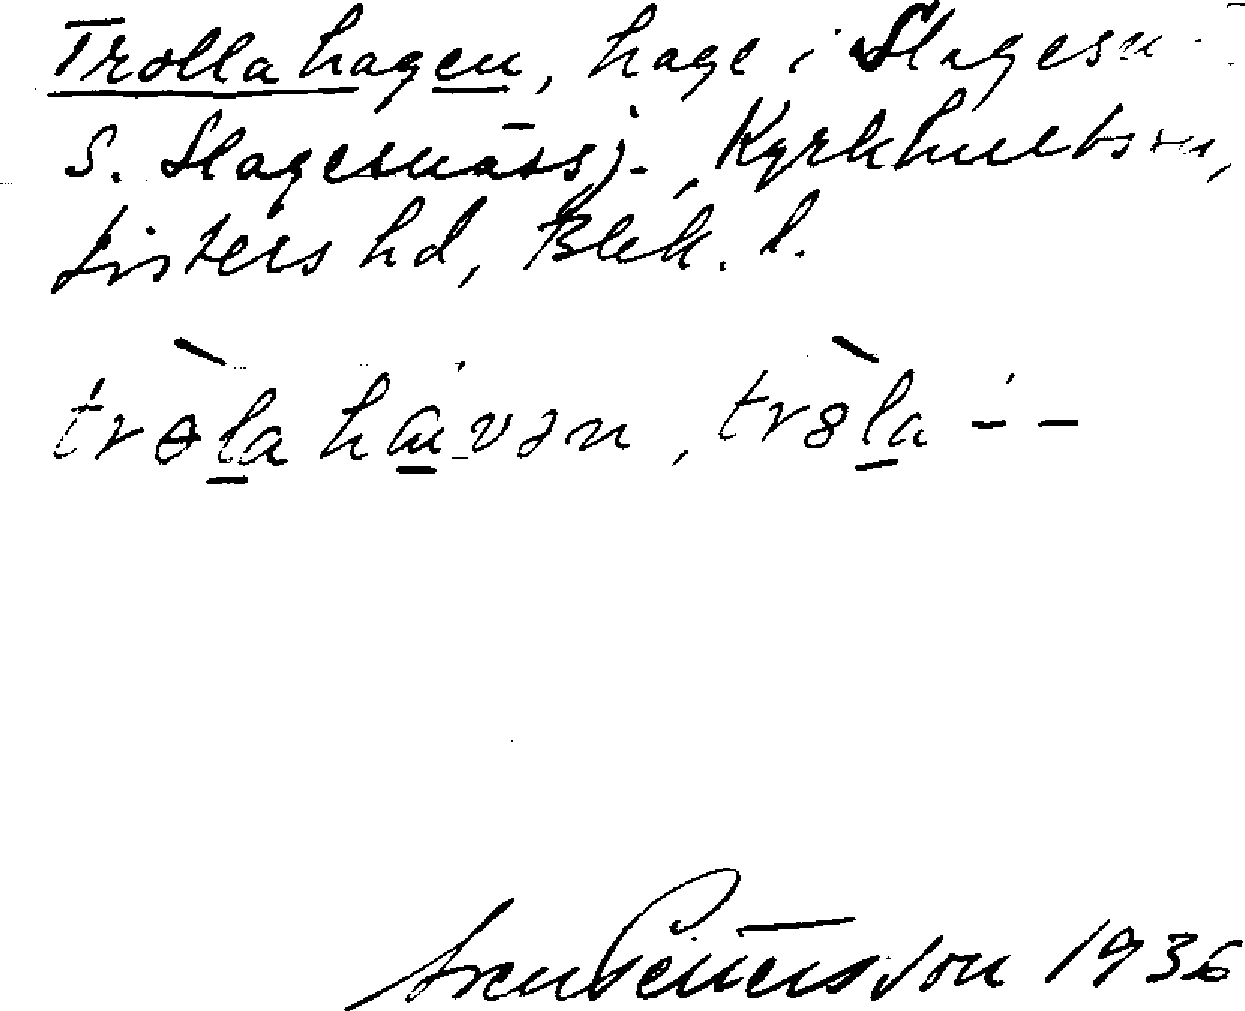 Trollahagen, hage i Slagesn-
S. SlagesnäsSj., Kyrkhults sn,
Listers hd, Blek. l.
trɵ̀la hɑ̀vən, trȯ̀la – –
Sven Pettersson 1936